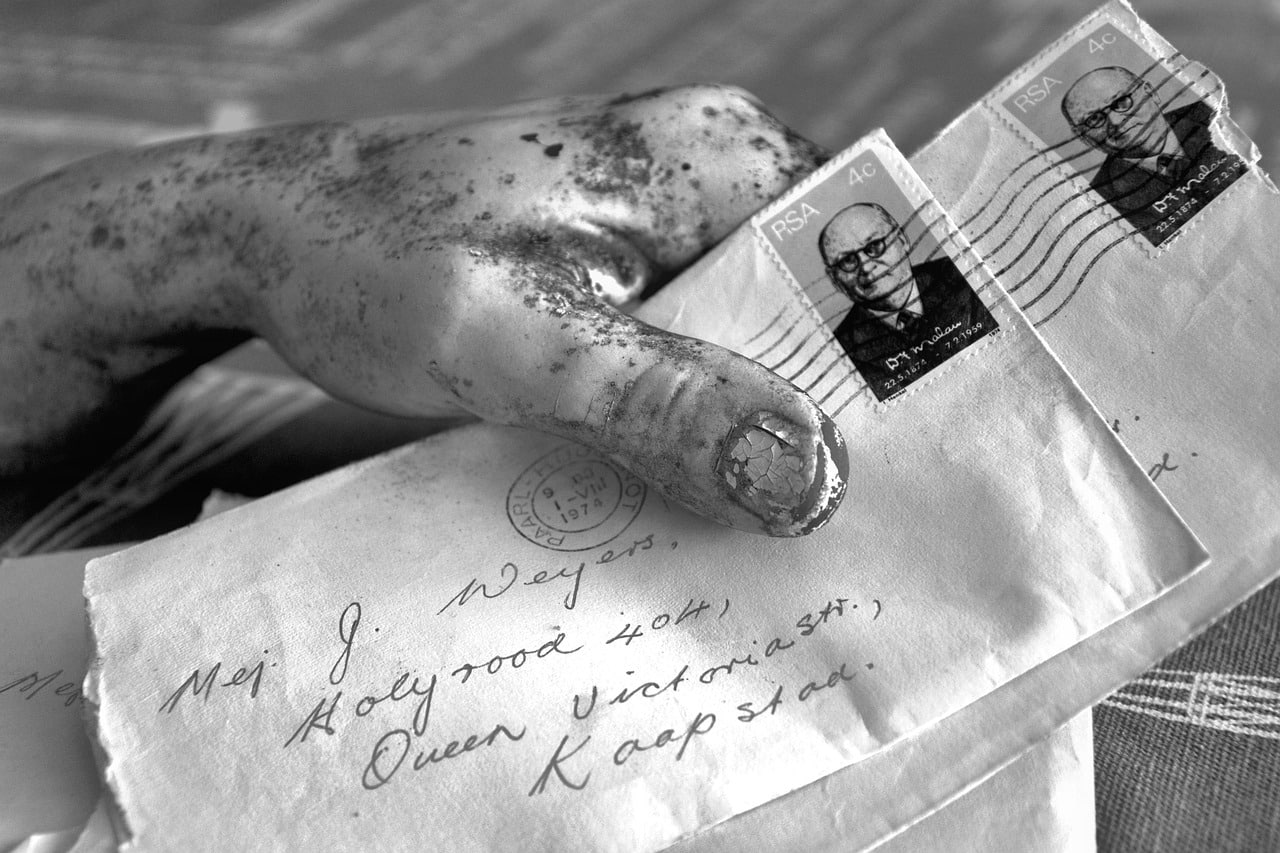 RSA 4c
D F Malan
22.5.1874 - 7.2.1959
RSA 4c
D F Malan
22.5.1874 - 7.2.19
PAARL-
9
1-VII
1974
Mej. J. Weyers,
Holyrood 404,
Queen Victoriastr.,
Kaapstad.
Mej
d.